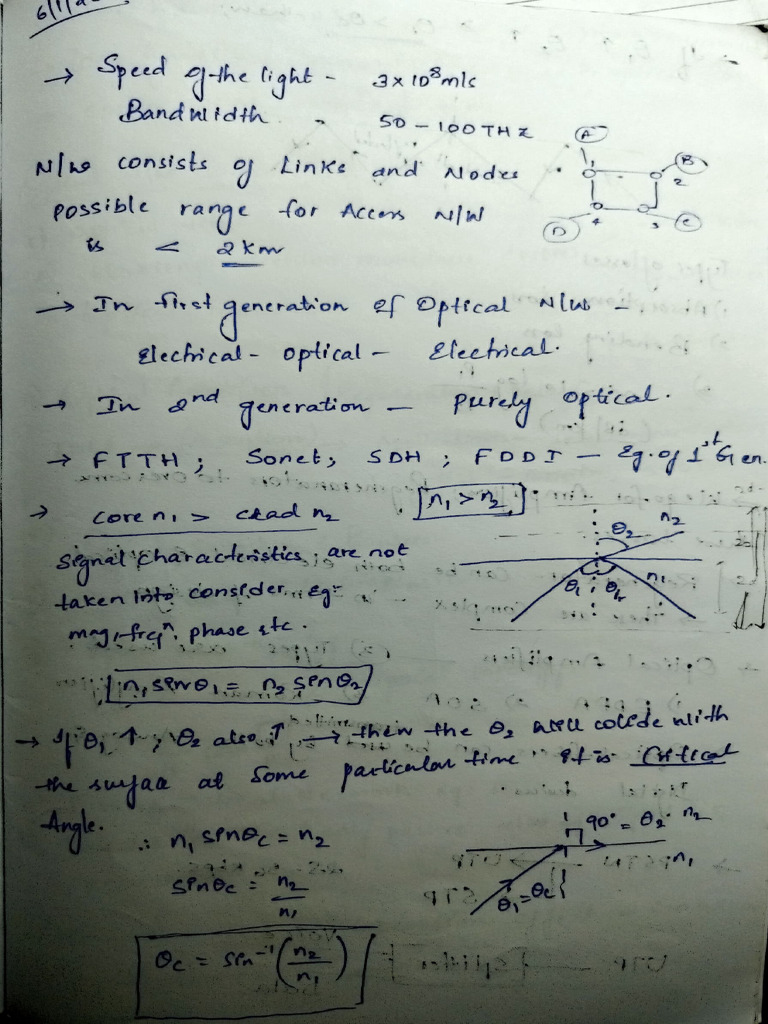 → Speed of the light - 3 x 10⁸ m/s
Bandwidth - 50 - 100 THz
N/w consists of Links and Nodes
possible range for Access N/W
is < 2 km
A
1
B
2
D
4
3
C
→ In first generation of Optical N/w -
Electrical - optical - Electrical.
→ In 2nd generation - purely optical.
→ FTTH ; Sonet ; SDH ; FDDI - Eg. of 1st Gen.
→ core n₁ > clad n₂
n₁ > n₂
signal characteristics are not
taken into consider. eg:
mag, freqⁿ, phase etc.
θ₂ n₂
θ₁ θᵣ n₁
n₁ sinθ₁ = n₂ sinθ₂
→ If θ₁ ↑, θ₂ also ↑ → then the θ₂ will colide with
the surfaa at Some particular time it is Critical
Angle.
∴ n₁ sinθc = n₂
sinθc = n₂/n₁
90° = θ₂ n₂
n₁
θ₁ = θc
θc = sin⁻¹ (n₂/n₁)